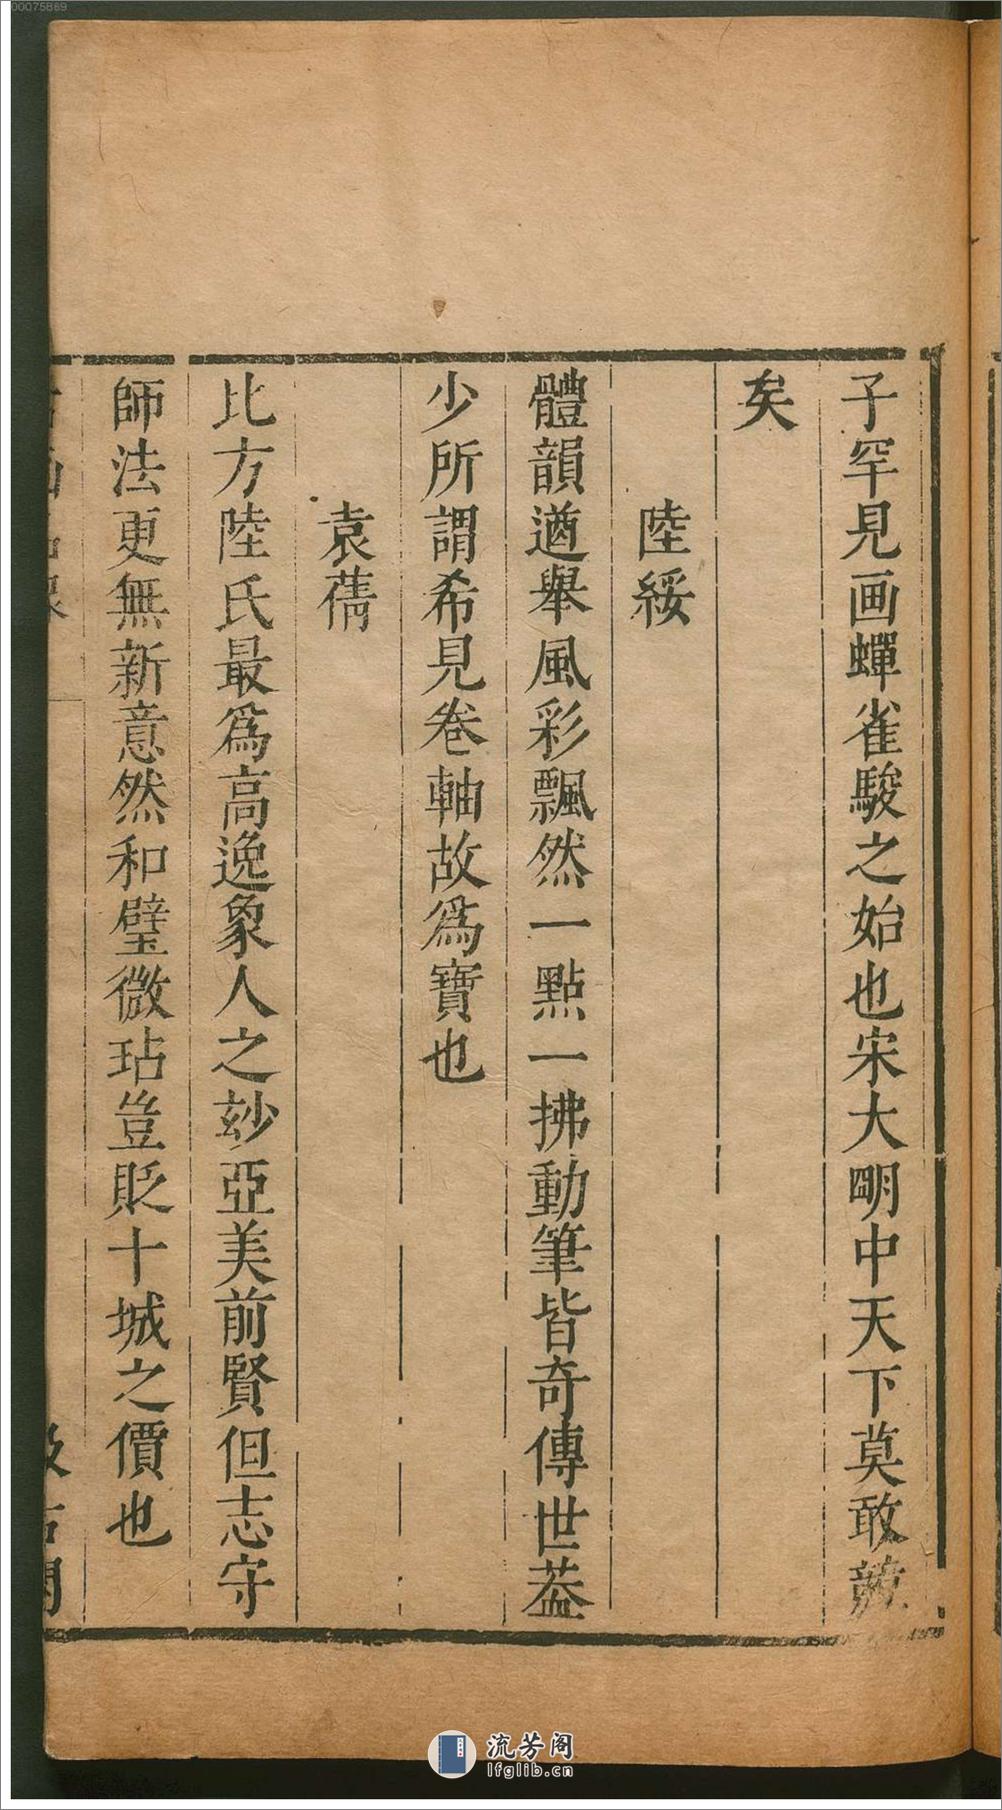 子罕見画蟬雀駿之始也宋大明中天下莫敢競
矣
陸綏
體韻遒舉風彩飄然一點一拂動筆皆奇傳世葢
少所謂希見卷軸故爲寶也
袁蒨
比方陸氏最爲高逸象人之玅亞美前賢但志守
師法更無新意然和璧微玷豈貶十城之價也
流芳阁
lfglib.cn
00075869